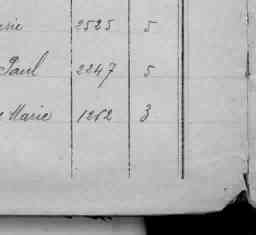 2525 5
Paul 2247 5
Marie 1262 3